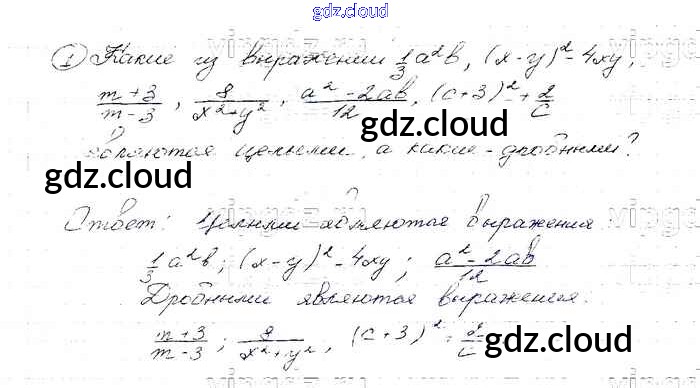 gdz.cloud
① Какие из выражений 1/3 a²b, (x-y)² - 4xy,
(m+3)/(m-3), 8/(x²+y²), (a²-2ab)/12, (c+3)² + 2/c
gdz.cloud
являются целыми, а какие - дробными?
gdz.cloud
Ответ: Целыми являются выражения
1/3 a²b; (x-y)² - 4xy; (a²-2ab)/12
Дробными являются выражения:
(m+3)/(m-3); 8/(x²+y²), (c+3)² + 2/c
gdz.cloud